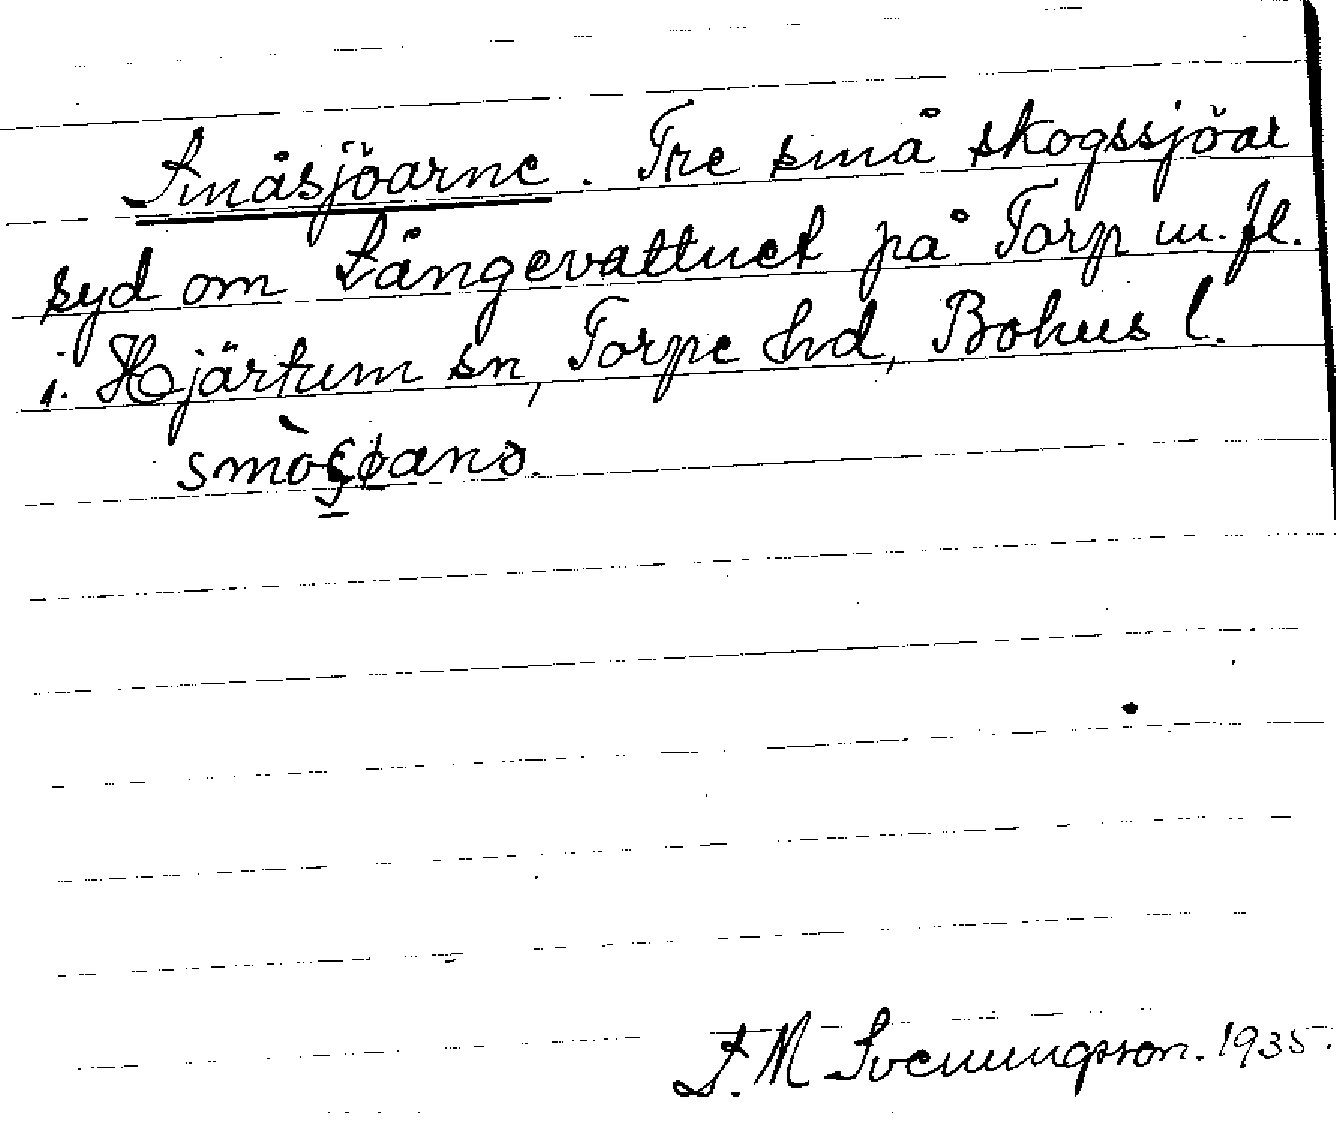 Småsjöarne. Tre små skogssjöar
syd om Långevattnet på Torp m. fl.
i Hjärtum sn, Torpe hd, Bohus l.
smòʂøanə.
S. M Svenungsson. 1935.